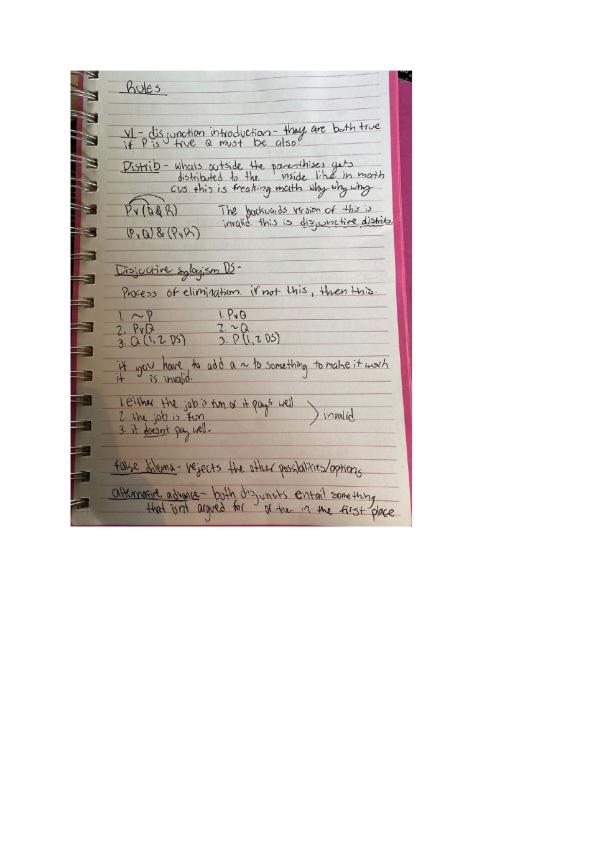 Rules
VI - disjunction introduction - they are both true
if P is true Q must be also
Distrib - whats outside the parenthises gets
distributed to the inside like in math
cus this is freaking math why why why
Pv(Q&R) The backwards version of this is
invalid. this is disjunctive distrib
(PvQ) & (PvR)
Disjuctive sylogism DS-
Process of elimination if not this, then this.
1. ~P 1. PvQ
2. PvQ 2. ~Q
3. Q (1,2 DS) 3. P (1,2 DS)
if you have to add a ~ to something to make it work
it is invalid.
1. either the job is fun or it pays well
2. the job is fun invalid
3. it doesnt pay well.
false dilema - rejects the other possbalities/options
alternative advance - both disjuncts entail something
that isnt argued for in the first place